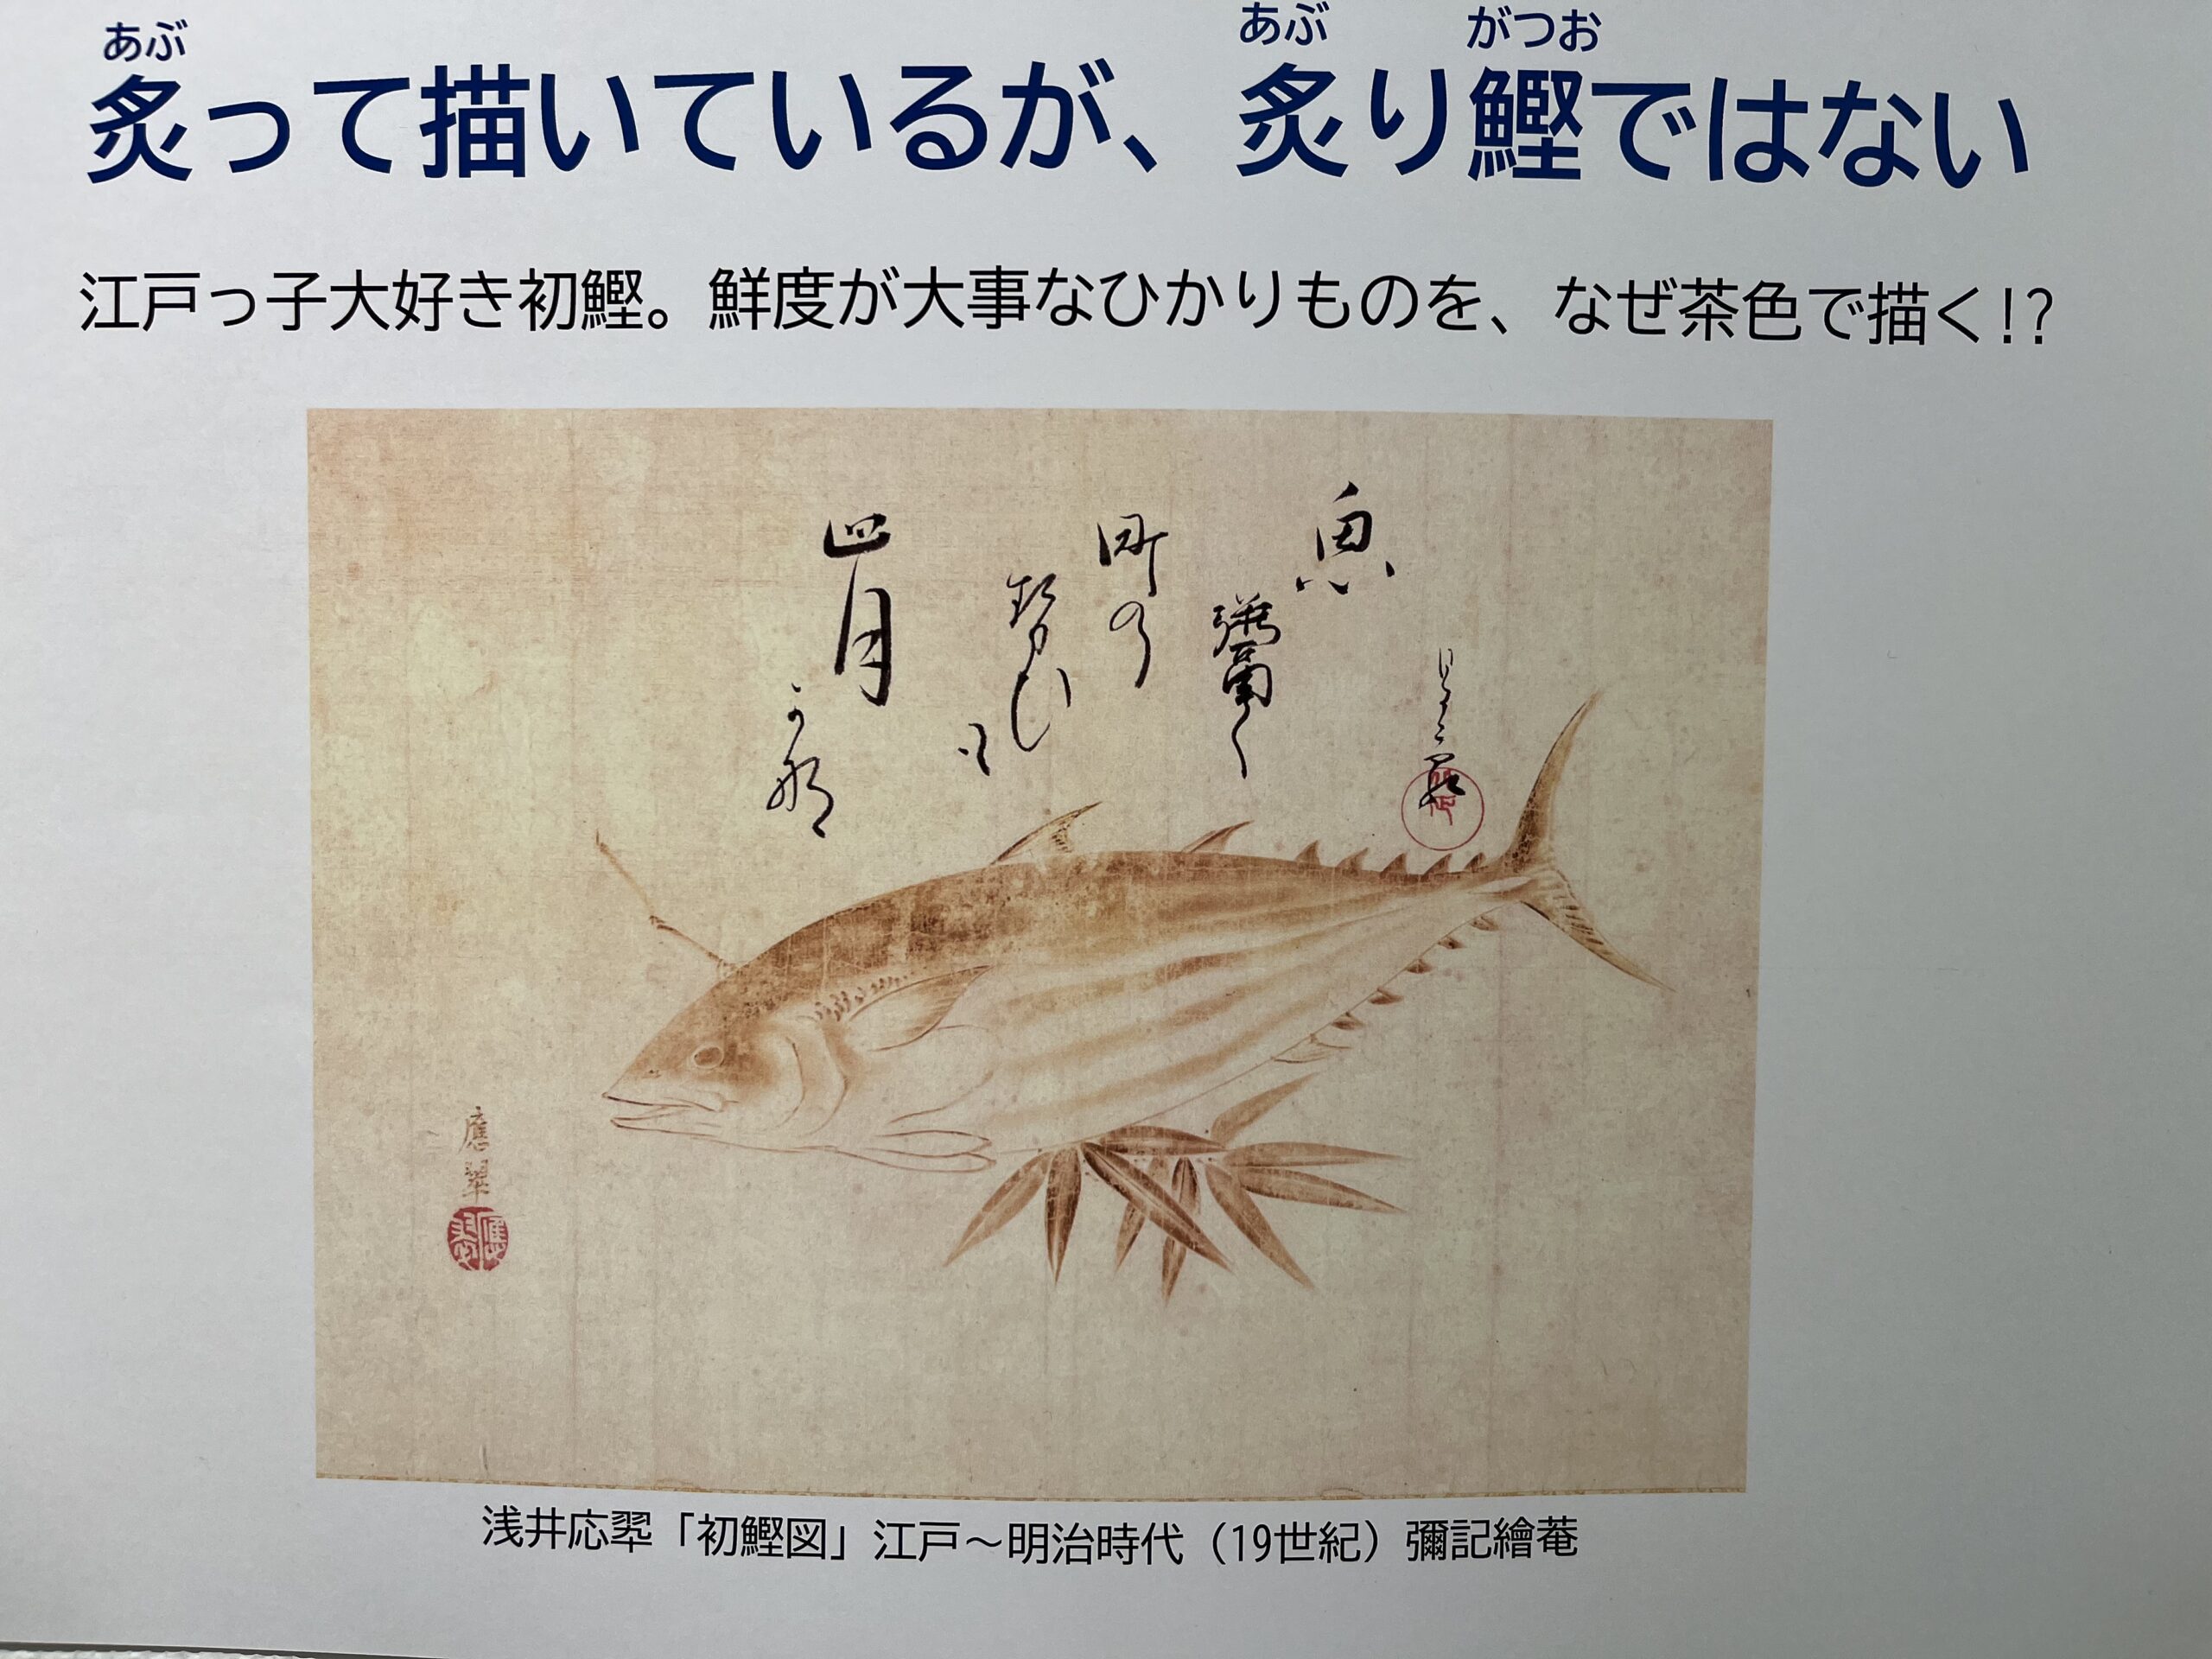 あぶ
あぶ
がつお
炙って描いているが、炙り鰹ではない
江戸っ子大好き初鰹。鮮度が大事なひかりものを、なぜ茶色で描く!?
魚
町の
四月
應翠
浅井応翠「初鰹図」江戸〜明治時代（19世紀）彌記繪菴